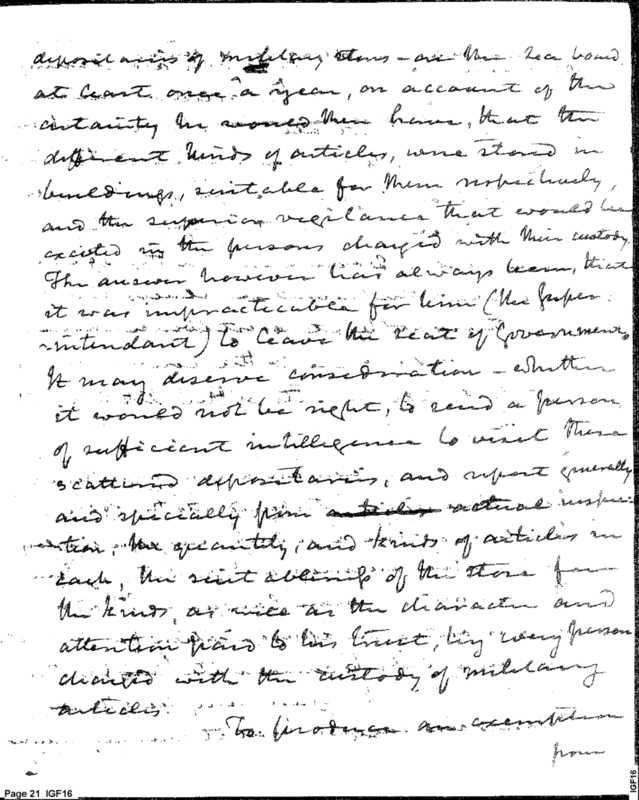 depositaries of military stores - on the sea board
at least once a year, on account of the
certainty he would then have, that the
different kinds of articles, were stored in
buildings, suitable for them respectively,
and the superior vigilance that would be
excited in the persons charged with their custody.
The answer however has always been, that
it was impracticable for him (the Super-
-intendant) to leave the seat of Government.
It may deserve consideration - whether
it would not be right, to send a person
of sufficient intelligence to visit these
scattered depositaries, and report generally
and specially from articles actual inspec-
-tion, the quantity, and kinds of articles in
each, the suitableness of the store for
the kinds, as well as the character and
attention paid to his trust, by every person
charged with the custody of military
articles.
To produce an exemption
from
Page 21 IGF16
IGF16